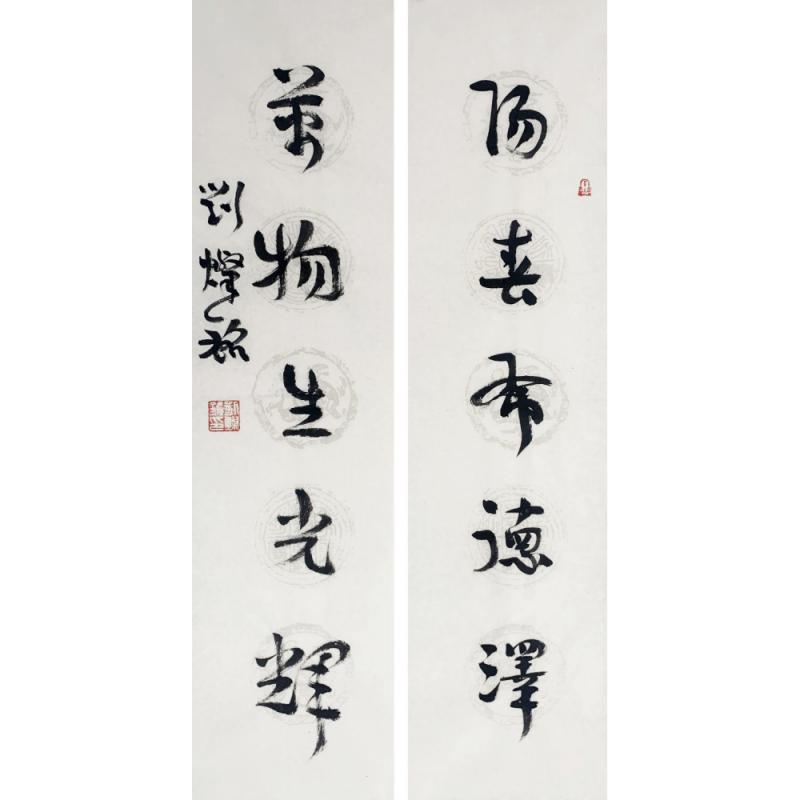 陽春布德澤
萬物生光輝
劉燦銘